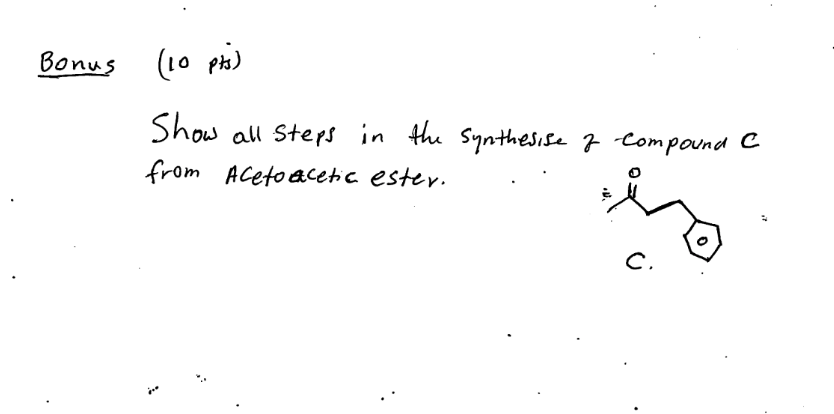 Bonus (10 pts)
Show all steps in the synthesise of compound C
from Acetoacetic ester.
O
C.